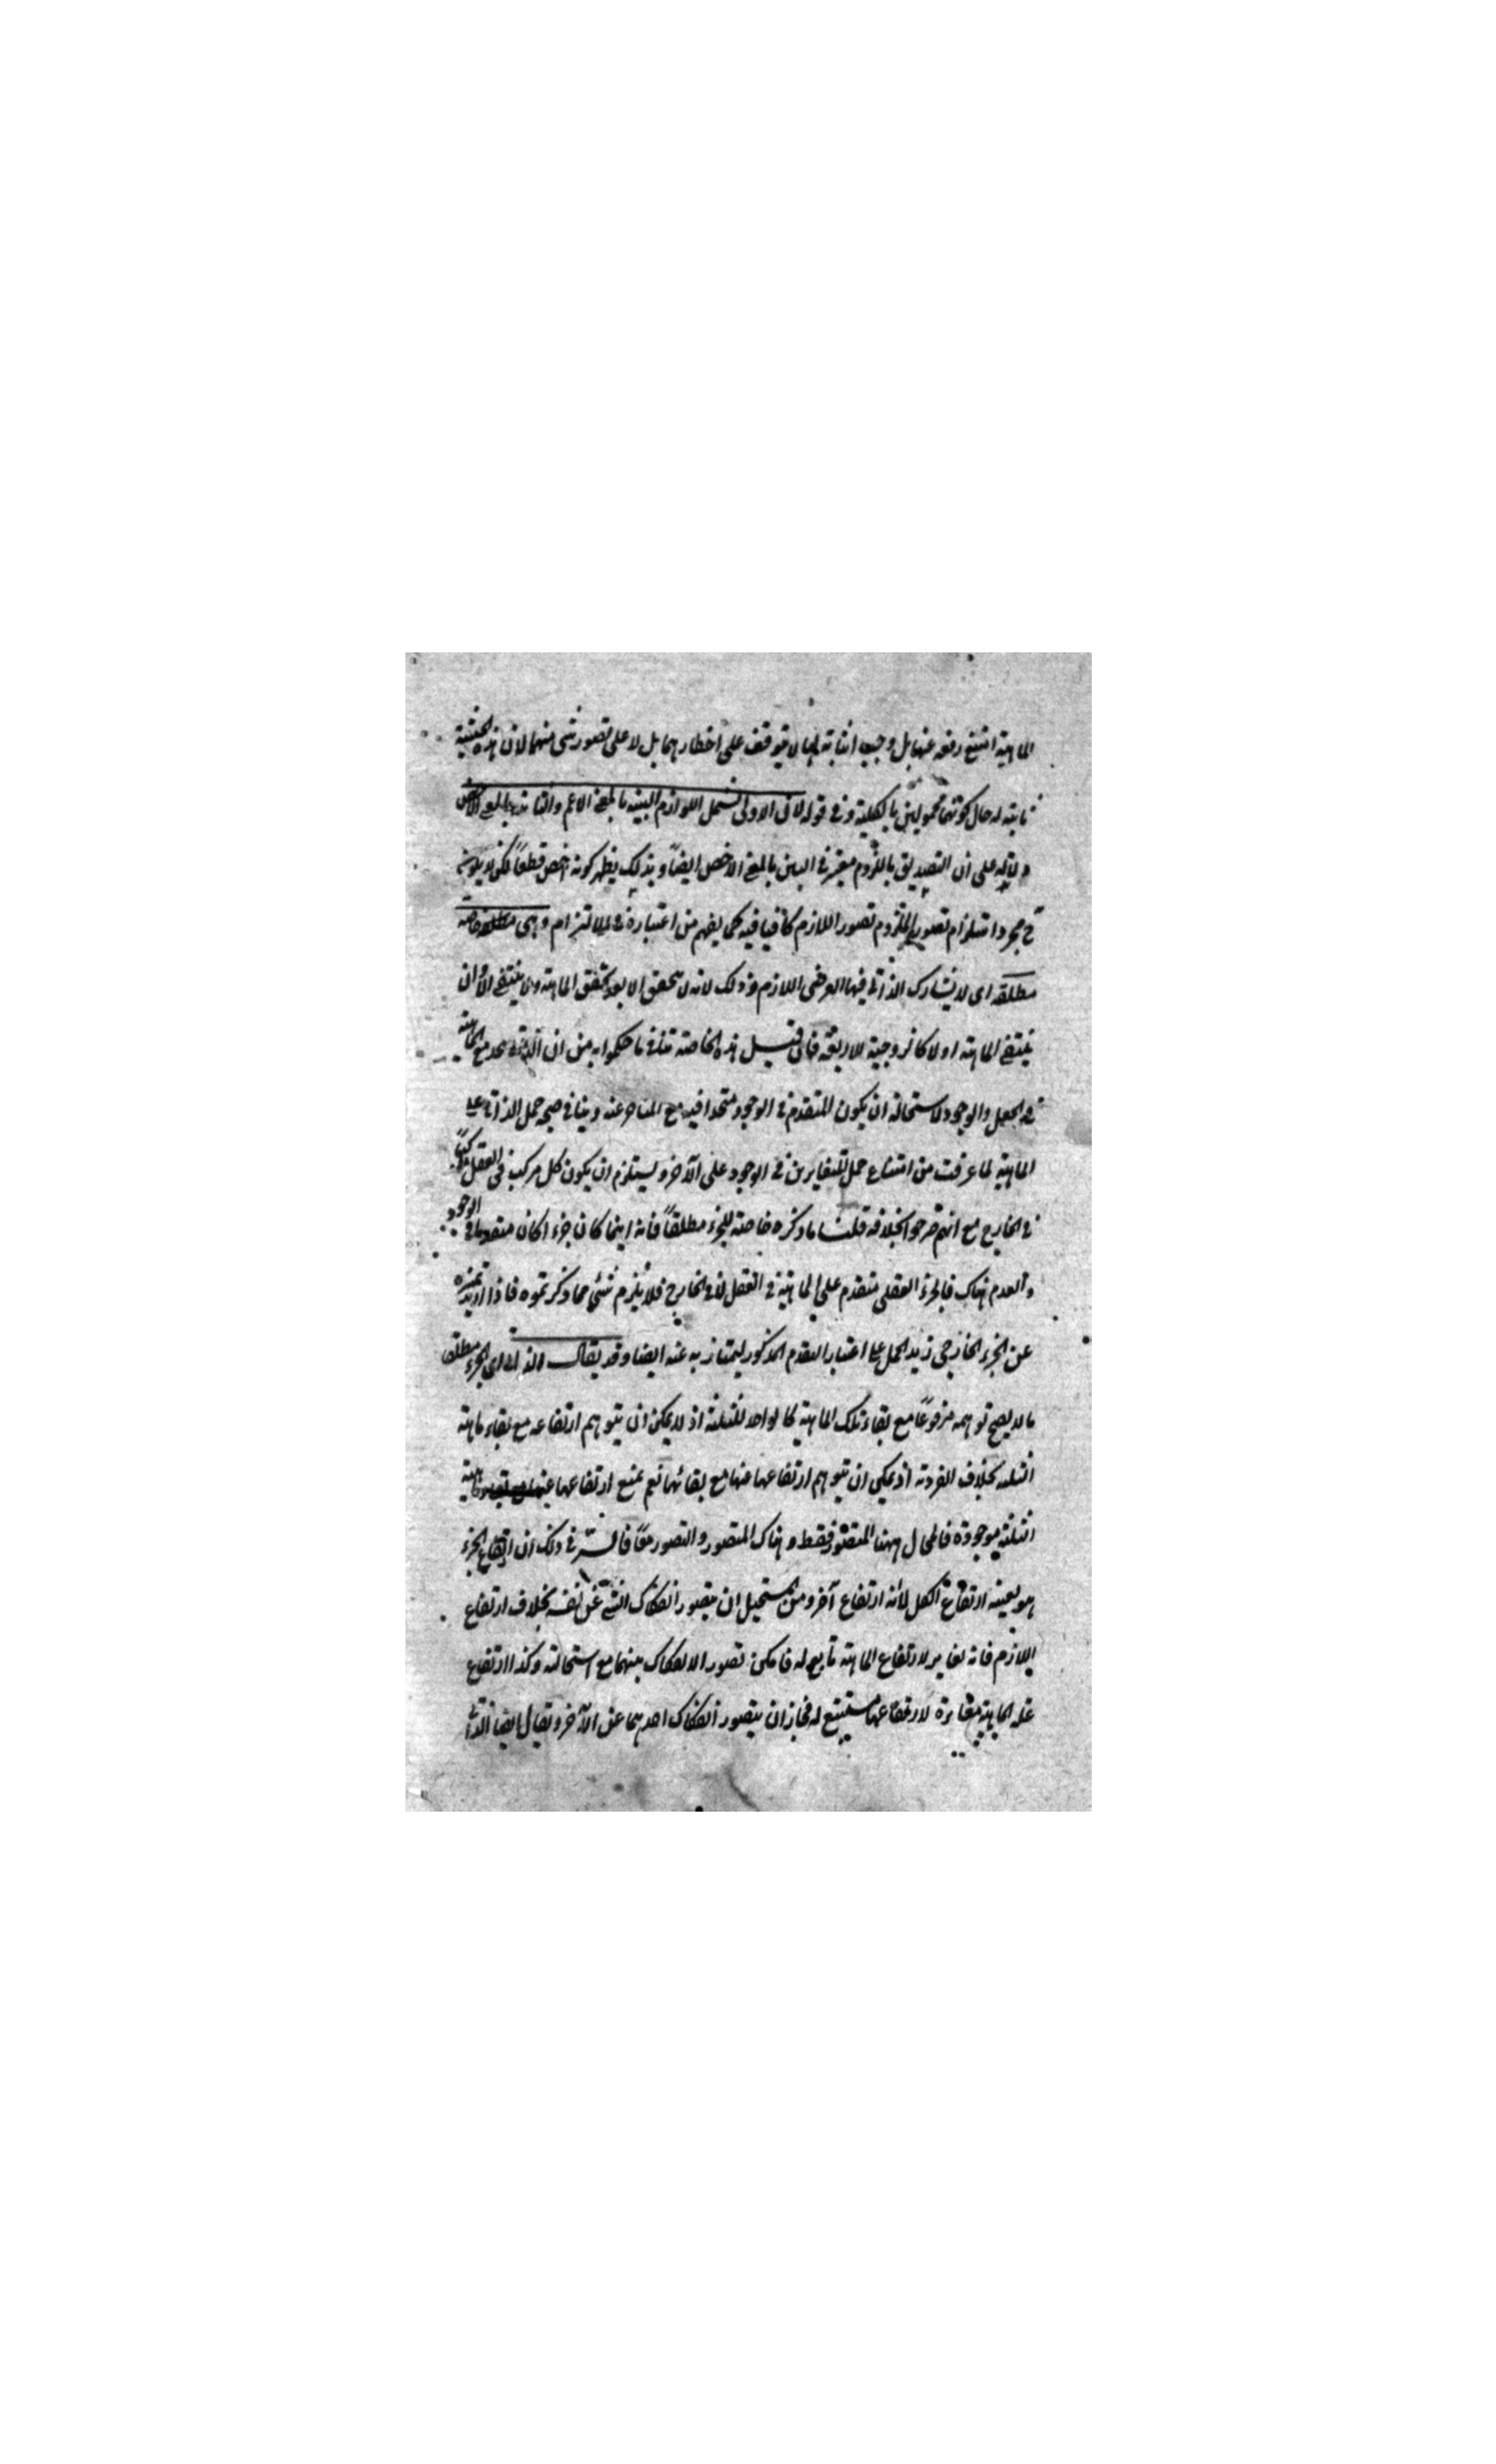 الماهية امتنع رفعه عنها بل وجب اثباته لها لا يتوقف على اخطارهما بل لا على تصور شئ منهما لان هذه الحيثية
ثابتة له حال كونهما مجهولين بالكلية وفى قوله لان الاولى تشمل اللوازم البينة بالمعنى الاعم والثانية بالمعنى الاخص
دلالة على ان التصديق باللزوم معتبر فى البين بالمعنى الاخص ايضاً وبذلك يظهر كونه اخص قطعاً لكن لا يكون
ح مجرد استلزام تصور الملزوم تصور اللازم كافيا فيه كما يفهم من اعتباره فى الالتزام وهى خاصة
مطلقة اى لا يشارك الذاتى فيها العرضى اللازم وذلك لانه لا يتحقق الا بعد تحقق الماهية ولا ينتفى الا ان
ينتفى الماهية اولا كالزوجية للاربعة فان قيل هذه الخاصة تنافى ما حكموا به من ان الذاتى متحد مع الماهية
فى الجعل والوجود لاستحالة ان يكون المتقدم فى الوجود متحدا فيه مع المتاخر عنه وينافى صحة حمل الذاتى على
الماهية لما عرفت من امتناع حمل المتغايرين فى الوجود على الآخر ويستلزم ان يكون كل مركب فى العقل مركباً
فى الخارج مع انهم صرحوا بخلافه قلنا ما ذكره خاصة للجزء مطلقاً فانه اينما كان جزءا كان متقدما فى الوجود
والعدم هناك فالجزء العقلى متقدم على الماهية فى العقل لا فى الخارج فلا يلزم شئ مما ذكرتموه فاذا اريد تميزه
عن الجزء الخارجى زيد الحمل على اعتبار التقدم المذكور ليمتاز به عنه ايضا وقد يقال الذاتى اى الجزء مطلقا
ما لا يصح توهمه مرفوعاً مع بقاء تلك الماهية كالواحد للثلثة اذ لا يمكن ان يتوهم ارتفاعه مع بقاء ماهية
الثلثة بخلاف الفردية اذ يمكن ان يتوهم ارتفاعها عنها مع بقائها نعم يمتنع ارتفاعها عنها مع بقاء ماهية
الثلثة موجودة فالمحال ههنا المتصور فقط وهناك المتصور والتصور معًا فالسر فى ذلك ان ارتفاع الجزء
هو بعينه ارتفاع الكل لا انه ارتفاع آخر ومن المستحيل ان يتصور انفكاك الشئ عن نفسه بخلاف ارتفاع
اللازم فانه مغاير لارتفاع الماهية تابع له فامكن تصور الانفكاك بينهما مع استحالته وكذا ارتفاع
علة الماهية مغايرة لارتفاعها مستتبع له فجاز ان يتصور انفكاك احدهما عن الآخر ويقال ايضا الذاتى